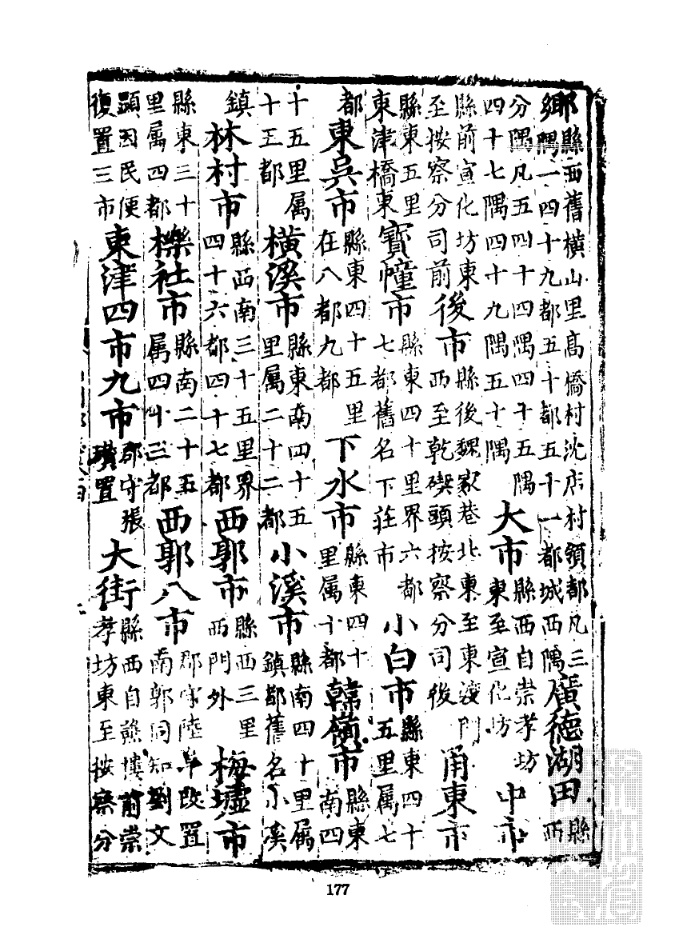 鄞縣西舊橫山里高橋村沈店村領都凡三
鄉隅一四十九都五十都五十一都城西隅廣德湖田縣西
分隅凡五四十四隅四十五隅四十七隅四十九隅五十隅大市縣西自崇孝坊東至宣化坊中市
縣前宣化坊東至按察分司前後市縣後魏家巷北東至東渡門西至乾碶頭按察分司後甬東市
縣東五里東津橋東寳幢市縣東四十里界六都七都舊名下莊市小白市縣東四十五里属七
都東吳市縣東四十五里在八都九都下水市縣東四十里属十都韓嶺市縣東南四
十五里属十三都橫溪市縣東南四十五里属二十二都小溪市縣南四十里属鎮都舊名小溪
鎮林村市縣西南三十五里界四十六都四十七都西郭市縣西三里西門外梅墟市
縣東三十里属四都櫟社市縣南二十五属四十三都西郭八市郡守陸阜改置南郭同知劉文
顯因民便復置三市東津四市九市郡守張瓚置大街縣西自樓前崇孝坊東至按察分
177